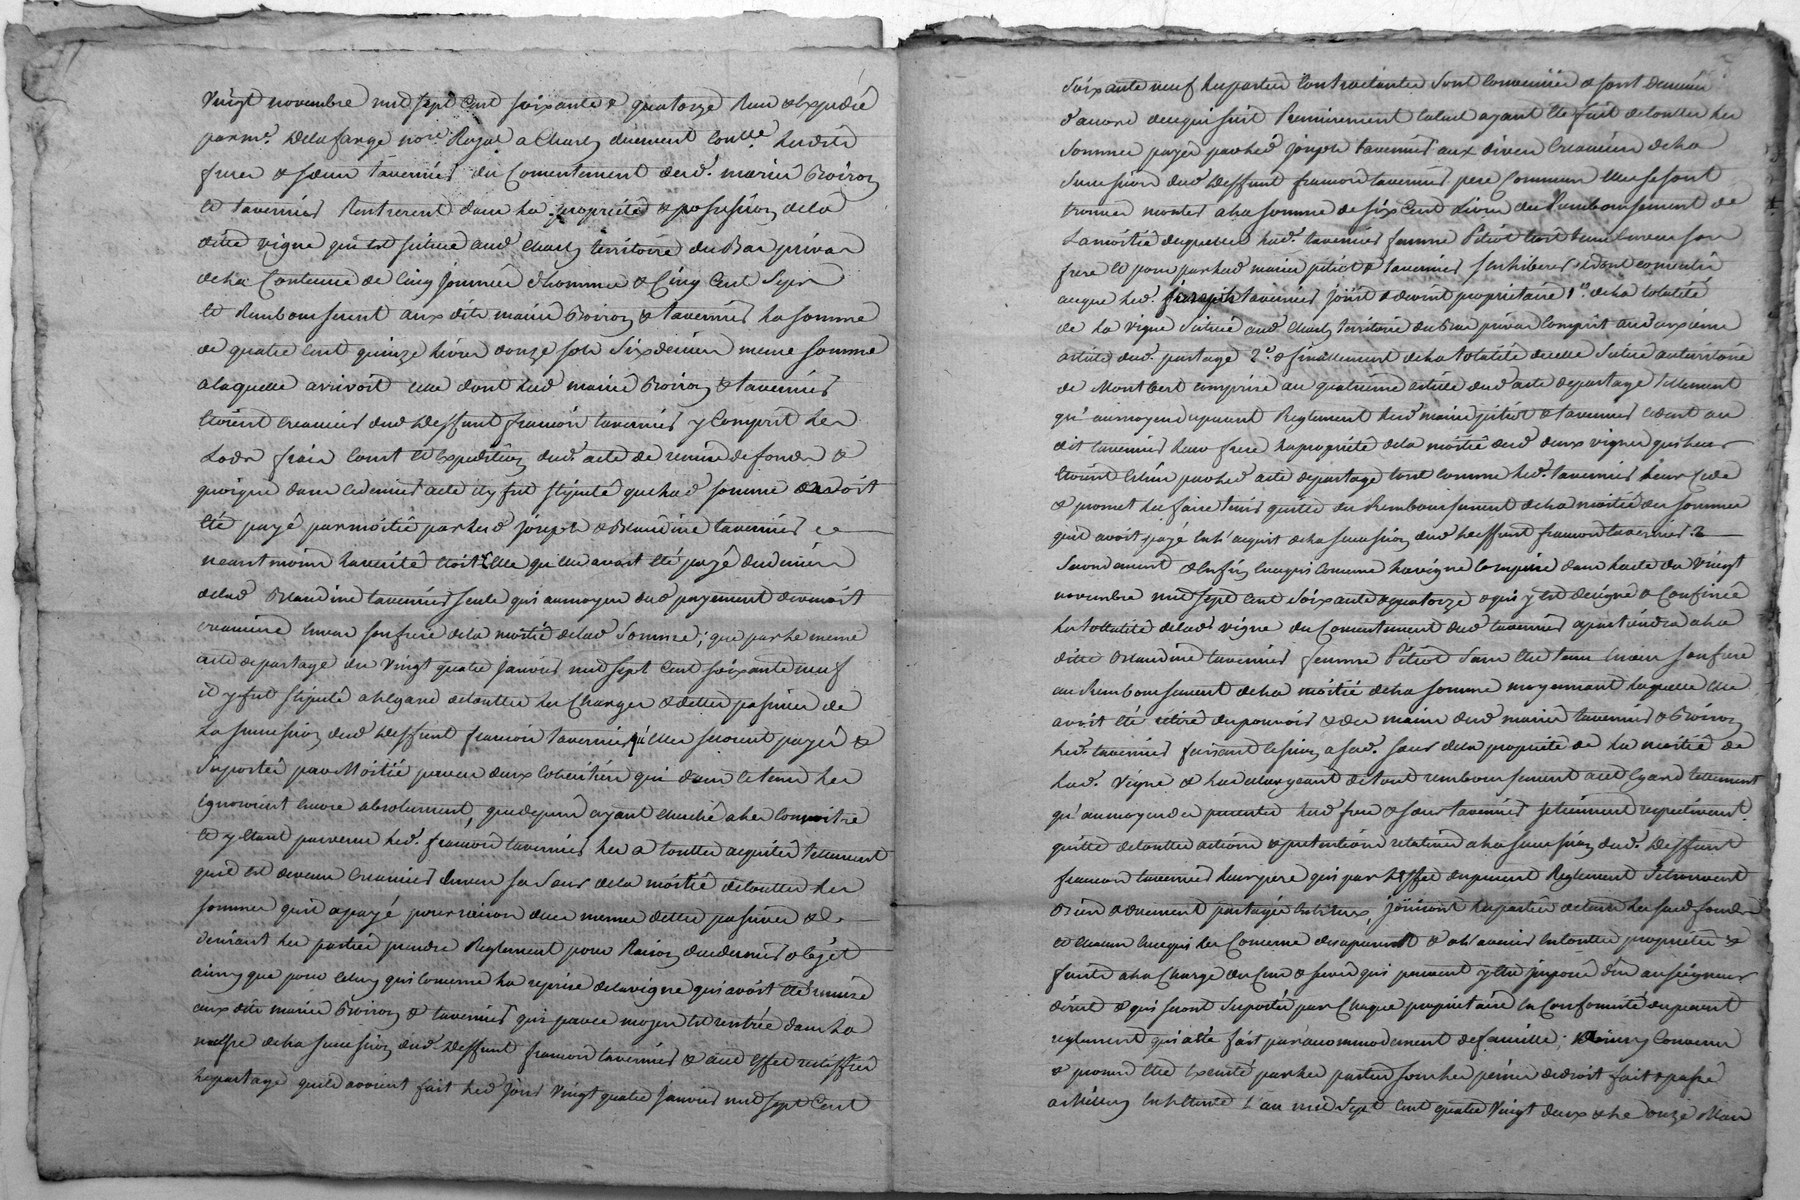 Vingt novembre mil sept Cent soixante & quatorze Reçu & Expedié
par me. Delafarge nore. Royal a Charly duement contlé. lesdits
frere & sœur taverniers du Consentement desd. mariés Boiron
et taverniers Rentrerent dans la propriété & possession de la
ditte vigne qui est scituée aud. Charly territoire du Bas privas
de la Contenue de Cinq journées d'hommes & Cinq Cent Seps
et Rembourserent aux dits mariés Boiron & taverniers la somme
de quatre Cent quinze livres douze sols Six deniers meme somme
a laquelle arrivoit celle dont lesd. mariés Boiron & taverniers
Etoient creanciers dud. Deffunt françois taverniers y Compris les
Lods frais Cout et Expedition dud. acte de remise de fonds &
quoique dans ce dernier acte il y fut stipulé que lad. somme avoit
Eté payé par moitié par lesd. joseph & Blandine taverniers
neantmoins la verité Etoit Elle qu'elle avoit Eté payé des deniers
de lad. Blandine taverniers seule qui au moyen dud. payement devenoit
creanciere Envers son frere de la moitié de lad. Somme; que par le meme
acte de partage du Vingt quatre janvier mil sept Cent soixante neuf
il y fut stipulé a l'egard de touttes les Charges & dettes passives de
La succession dud. Deffunt françois taverniers qu'elles seroient payées &
Suportées par Moitié par ces deux coheritiers qui dans ce tems les
Ignoroient Encore absolument, que depuis ayant cherché a les connoitre
et y etant parvenu led. françois taverniers les a touttes acquitées tellement
qu'il est devenu Creancier Envers sa Sœur de la moitié de touttes les
sommes qu'il a payé pour raison de ces memes dettes passives & le
desirant les parties prendre Reglement pour Raison du dernier objet
ainsy que pour celuy qui concerne la reprise de la vigne qui avoit Eté remise
aux dits mariés Boiron & taverniers qui par ce moyen est rentrée dans la
masse de la succession dud. Deffunt françois taverniers & a cet Effet rectiffier
le partage qu'ils avoient fait led. jour Vingt quatre janvier mil sept Cent
Soixante neuf les parties Contractantes sont Convenües & sont Demeurés
d'accord de ce qui suit Premierement Calcul ayant Eté fait de touttes les
Sommes payés par led. joseph taverniers aux divers Creanciers de la
Succession dud. Deffunt françois taverniers pere Commun Elles se sont
trouvées montées a la somme de six Cent Livres du Remboursement de
La moitié de laquelle lad. taverniers femme Pitiot Etoit tenue Envers son
frere et pour par lesd. mariés pitiot & taverniers s'en liberer ont consenti
a ce que led. joseph taverniers jouit & devint proprietaire 1º. de la totalité
de la vigne scituée aud. Charly territoire du Bas privas Compris au deuxieme
article dud. partage 2º. & finallement de la totalité de celle scituée au territoire
de Montbert comprise au quatrieme article dud. acte de partage tellement
qu'au moyen du present Reglement lesd. mariés pitiot & taverniers cedent au
dit taverniers leur frere la propriété de la moitié desd. deux vignes qui leurs
Etoient Echus par led. acte de partage tout comme led. taverniers leurs Cede
& promet les faire tenir quittes du Remboursement de la moitié des sommes
qu'il avoit payé En l'acquit de la succession dud. Deffunt françois taverniers
Secondement & Enfin Ence qui Concerne la vigne Comprise dans l'acte du Vingt
novembre mil sept Cent Soixante & quatorze & qui y est designé & Confinée
La totalité de lad. vigne du Consentement dud. taverniers apartiendra a la
ditte Blandine taverniers femme Pitiot Sans Etre tenue Envers son frere
au Remboursement de la moitié de la somme moyennant laquelle Elle
avoit Eté retiré du pouvoir & des mains desd. mariés taverniers & Boiron
led. taverniers faisant cession a sad. sœur de la propriété de la moitié de
lad. Vigne & la dechargeant de tout remboursement a cet Egard tellement
qu'au moyen des presentes lesd. frere & sœur taverniers se tiennent respectivemt.
quittes de touttes actions & pretentions relatives a la succession dud. Deffunt
françois taverniers leur pere qui par l'Effet du present Reglement se trouvent
Bien & duement partagées Entre Eux, jouiront les parties de tous lesd. fonds
et Chacun Ence qui les Concerne des apresent & a l'avenir En touttes propriétés &
fruits a la Charge du Cens & servis qui peuvent y Etre imposé dûs au seigneur
direct & qui seront suportés par Chaque proprietaire En Conformité du present
reglement qui a Eté fait par accommodement de famille; Ainsy Convenu
& promis Etre Executé par les parties sous les peines de droit fait & passé
a Millery En l'Etude L'an mil Sept Cent quatre Vingt deux & le onze Mars